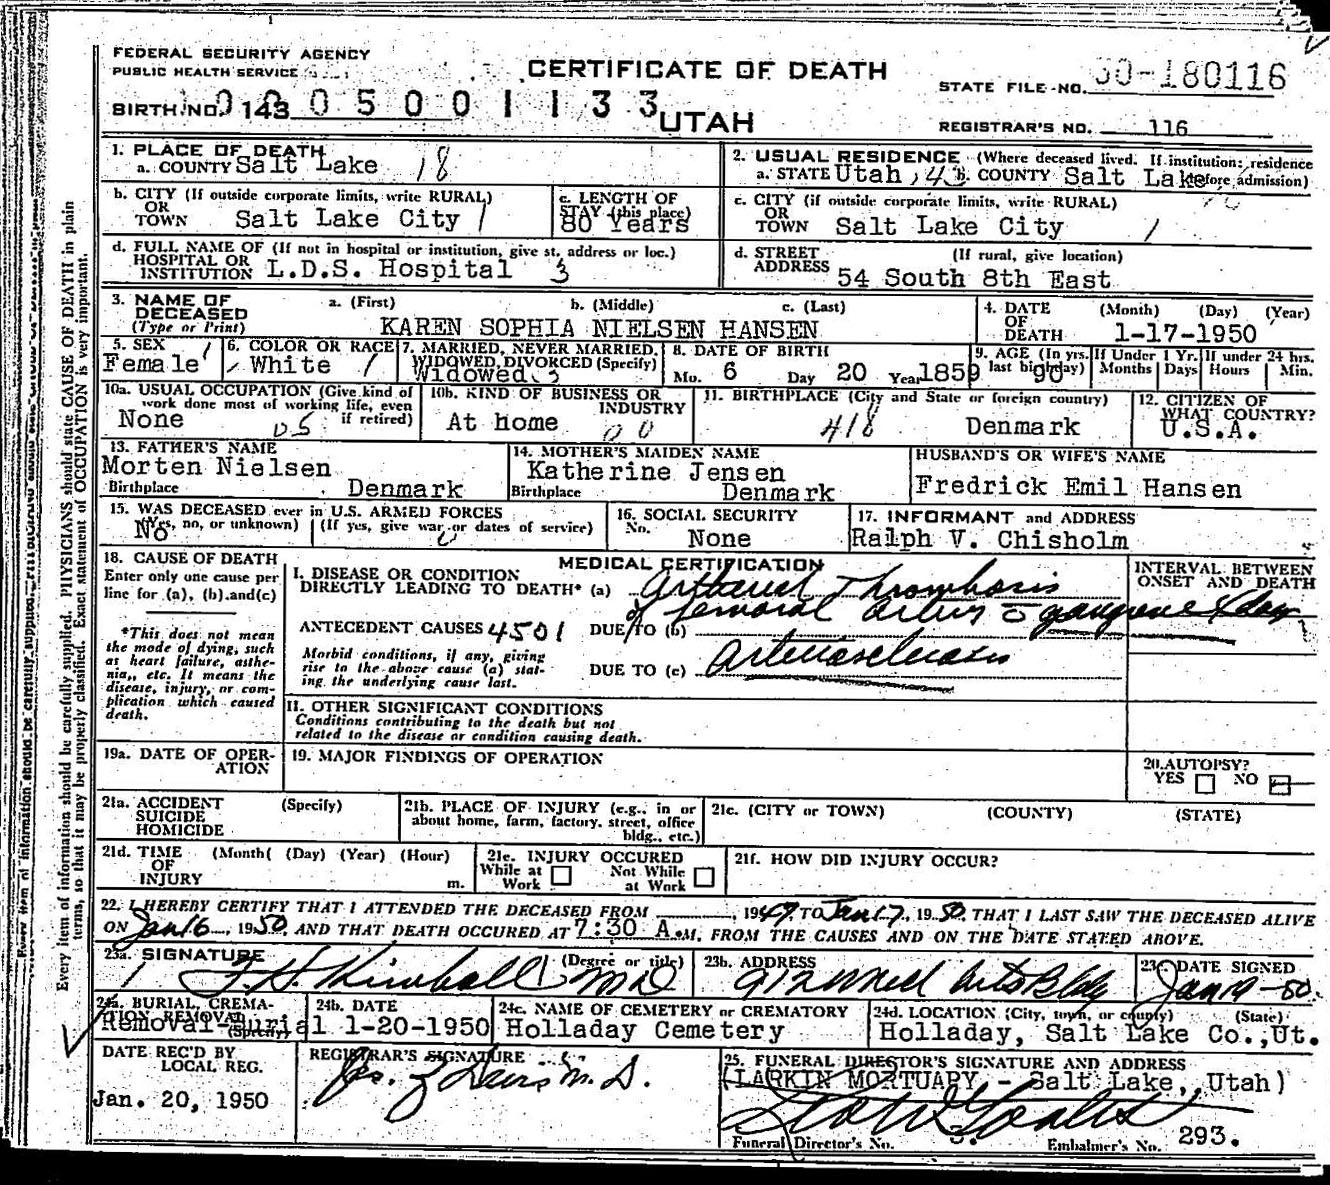 FEDERAL SECURITY AGENCY
PUBLIC HEALTH SERVICE
CERTIFICATE OF DEATH
STATE FILE NO. 50-180116
BIRTH NO. 143 0 0 0 5 0 0 1 1 3 3
UTAH
REGISTRAR'S NO. 116
1. PLACE OF DEATH
a. COUNTY Salt Lake 18
2. USUAL RESIDENCE (Where deceased lived. If institution: residence before admission)
a. STATE Utah 43 b. COUNTY Salt Lake
b. CITY (If outside corporate limits, write RURAL)
OR
TOWN Salt Lake City 1
c. LENGTH OF
STAY (this place)
80 Years
c. CITY (if outside corporate limits, write RURAL)
OR
TOWN Salt Lake City 1
d. FULL NAME OF (If not in hospital or institution, give st. address or loc.)
HOSPITAL OR
INSTITUTION L.D.S. Hospital 3
d. STREET (If rural, give location)
ADDRESS 54 South 8th East
3. NAME OF DECEASED
(Type or Print)
a. (First) b. (Middle) c. (Last)
KAREN SOPHIA NIELSEN HANSEN
4. DATE OF DEATH (Month) (Day) (Year)
1-17-1950
5. SEX
Female 1
6. COLOR OR RACE
White 1
7. MARRIED, NEVER MARRIED,
WIDOWED, DIVORCED (Specify)
Widowed 3
8. DATE OF BIRTH
Mo. 6 Day 20 Year 1859
9. AGE (In yrs. last birthday) 90
If Under 1 Yr.
Months Days
If under 24 hrs.
Hours Min.
10a. USUAL OCCUPATION (Give kind of
work done most of working life, even
if retired)
None
10b. KIND OF BUSINESS OR
INDUSTRY
At home
11. BIRTHPLACE (City and State or foreign country)
418 Denmark
12. CITIZEN OF
WHAT COUNTRY?
U.S.A.
13. FATHER'S NAME
Morten Nielsen
Birthplace Denmark
14. MOTHER'S MAIDEN NAME
Katherine Jensen
Birthplace Denmark
HUSBAND'S OR WIFE'S NAME
Fredrick Emil Hansen
15. WAS DECEASED ever in U.S. ARMED FORCES
(Yes, no, or unknown) (If yes, give war or dates of service)
No
16. SOCIAL SECURITY
No. None
17. INFORMANT and ADDRESS
Ralph V. Chisholm
18. CAUSE OF DEATH
Enter only one cause per
line for (a), (b) and (c)
*This does not mean
the mode of dying, such
as heart failure, asthe-
nia, etc. It means the
disease, injury, or com-
plication which caused
death.
MEDICAL CERTIFICATION
I. DISEASE OR CONDITION
DIRECTLY LEADING TO DEATH* (a) Arterial Thrombosis
of femoral artery c gangrene 4 days
INTERVAL BETWEEN
ONSET AND DEATH
ANTECEDENT CAUSES 4501 DUE TO (b)
Morbid conditions, if any, giving
rise to the above cause (a) stat-
ing the underlying cause last.
DUE TO (c) Arteriosclerosis
II. OTHER SIGNIFICANT CONDITIONS
Conditions contributing to the death but not
related to the disease or condition causing death.
19a. DATE OF OPER-
ATION
19. MAJOR FINDINGS OF OPERATION
20. AUTOPSY?
YES NO
21a. ACCIDENT (Specify)
SUICIDE
HOMICIDE
21b. PLACE OF INJURY (e.g., in or
about home, farm, factory, street, office
bldg., etc.)
21c. (CITY or TOWN) (COUNTY) (STATE)
21d. TIME (Month) (Day) (Year) (Hour)
OF
INJURY m.
21e. INJURY OCCURED
While at Work Not While at Work
21f. HOW DID INJURY OCCUR?
22. I HEREBY CERTIFY THAT I ATTENDED THE DECEASED FROM , 1949 TO Jan 17, 1950, THAT I LAST SAW THE DECEASED ALIVE
ON Jan 16, 1950, AND THAT DEATH OCCURED AT 7:30 A.M. FROM THE CAUSES AND ON THE DATE STATED ABOVE.
23a. SIGNATURE (Degree or title)
F. H. Kimball MD
23b. ADDRESS
912 Med Arts Bldg
23c. DATE SIGNED
Jan 19-50.
24a. BURIAL, CREMA-
TION, REMOVAL
(Specify)
Removal-Burial
24b. DATE
1-20-1950
24c. NAME OF CEMETERY or CREMATORY
Holladay Cemetery
24d. LOCATION (City, town, or county) (State)
Holladay, Salt Lake Co., Ut.
DATE REC'D BY
LOCAL REG.
Jan. 20, 1950
REGISTRAR'S SIGNATURE
M.D.
25. FUNERAL DIRECTOR'S SIGNATURE AND ADDRESS
(LARKIN MORTUARY, - Salt Lake, Utah)
Funeral Director's No. Embalmer's No. 293.
Every item of information should be carefully supplied. PHYSICIANS should state CAUSE OF DEATH in plain
terms, so that it may be properly classified. Exact statement of OCCUPATION is very important.